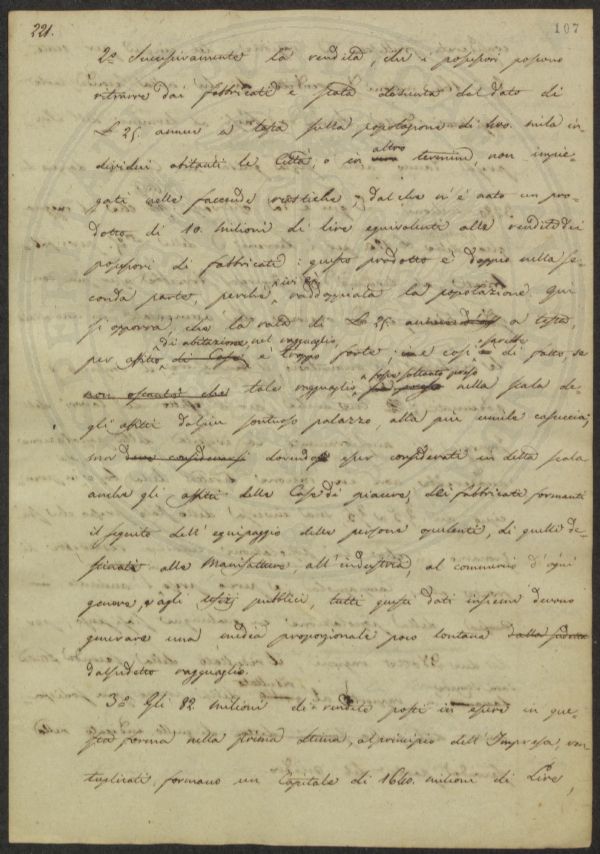 221.
107
2.o Successivamente la rendita, che i possessori possono
ritrarre dai fabbricati è stata desunta dal dato di
£ 25. annue a testa sulla popolazione di 400. mila in-
dividui abitanti le Città, o in altro termine, non impie-
gati nelle faccende rustiche; dal che n'è nato un pro-
dotto di 10. milioni di lire equivalenti alle rendite dei
possessori di fabbricati: questo prodotto è doppio nella se-
conda parte, perchè ivi è raddoppiata la popolazione. Qui
si opporrà, che la rata di £ 25. a testa,
per affitto di abitazione, nel ragguaglio, è troppo forte, e così sarebbe di fatto, se
tale ragguaglio fosse soltanto preso nella scala de-
gli affitti dal più sontuoso palazzo, alla più umile casuccia;
ma dovendosi esser considerati in detta scala
anche gli affitti delle Case di piacere, dei fabbricati formanti
il seguito dell'equipaggio delle persone opulenti, di quelli de-
stinati alle Manifatture, all'industria, al commercio d'ogni
genere, e agli Uffizj pubblici, tutti questi dati insieme devono
generare una media proporzionale poco lontana dalla sudetta
dal sudetto ragguaglio.
3.o Gli 82. milioni di rendite posti in essere in que-
sta forma nella prima ottina, al principio dell'Impresa, ven-
tuplicati formano un Capitale di 1640. milioni di Lire,